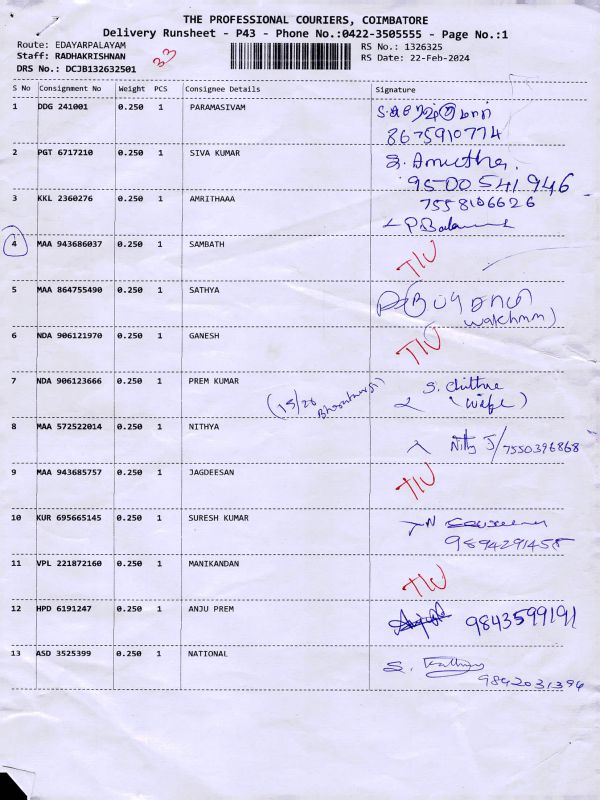 THE PROFESSIONAL COURIERS, COIMBATORE
Delivery Runsheet - P43 - Phone No.:0422-3505555 - Page No.:1
Route: EDAYARPALAYAM
RS No.: 1326325
Staff: RADHAKRISHNAN
33
RS Date: 22-Feb-2024
DRS No.: DCJB132632501
S No Consignment No Weight PCS Consignee Details Signature
1 DDG 241001 0.250 1 PARAMASIVAM
8675910774
2 PGT 6717210 0.250 1 SIVA KUMAR
S. Amutha.
9500541946
3 KKL 2360276 0.250 1 AMRITHAAA 7558106626
4 MAA 943686037 0.250 1 SAMBATH
5 MAA 864755490 0.250 1 SATHYA
6 NDA 906121970 0.250 1 GANESH
7 NDA 906123666 0.250 1 PREM KUMAR
(wife)
8 MAA 572522014 0.250 1 NITHYA
J/7550396868
9 MAA 943685757 0.250 1 JAGDEESAN
10 KUR 695665145 0.250 1 SURESH KUMAR
9894291455
11 VPL 221872160 0.250 1 MANIKANDAN
12 HPD 6191247 0.250 1 ANJU PREM 9843599191
13 ASD 3525399 0.250 1 NATIONAL
9842031394